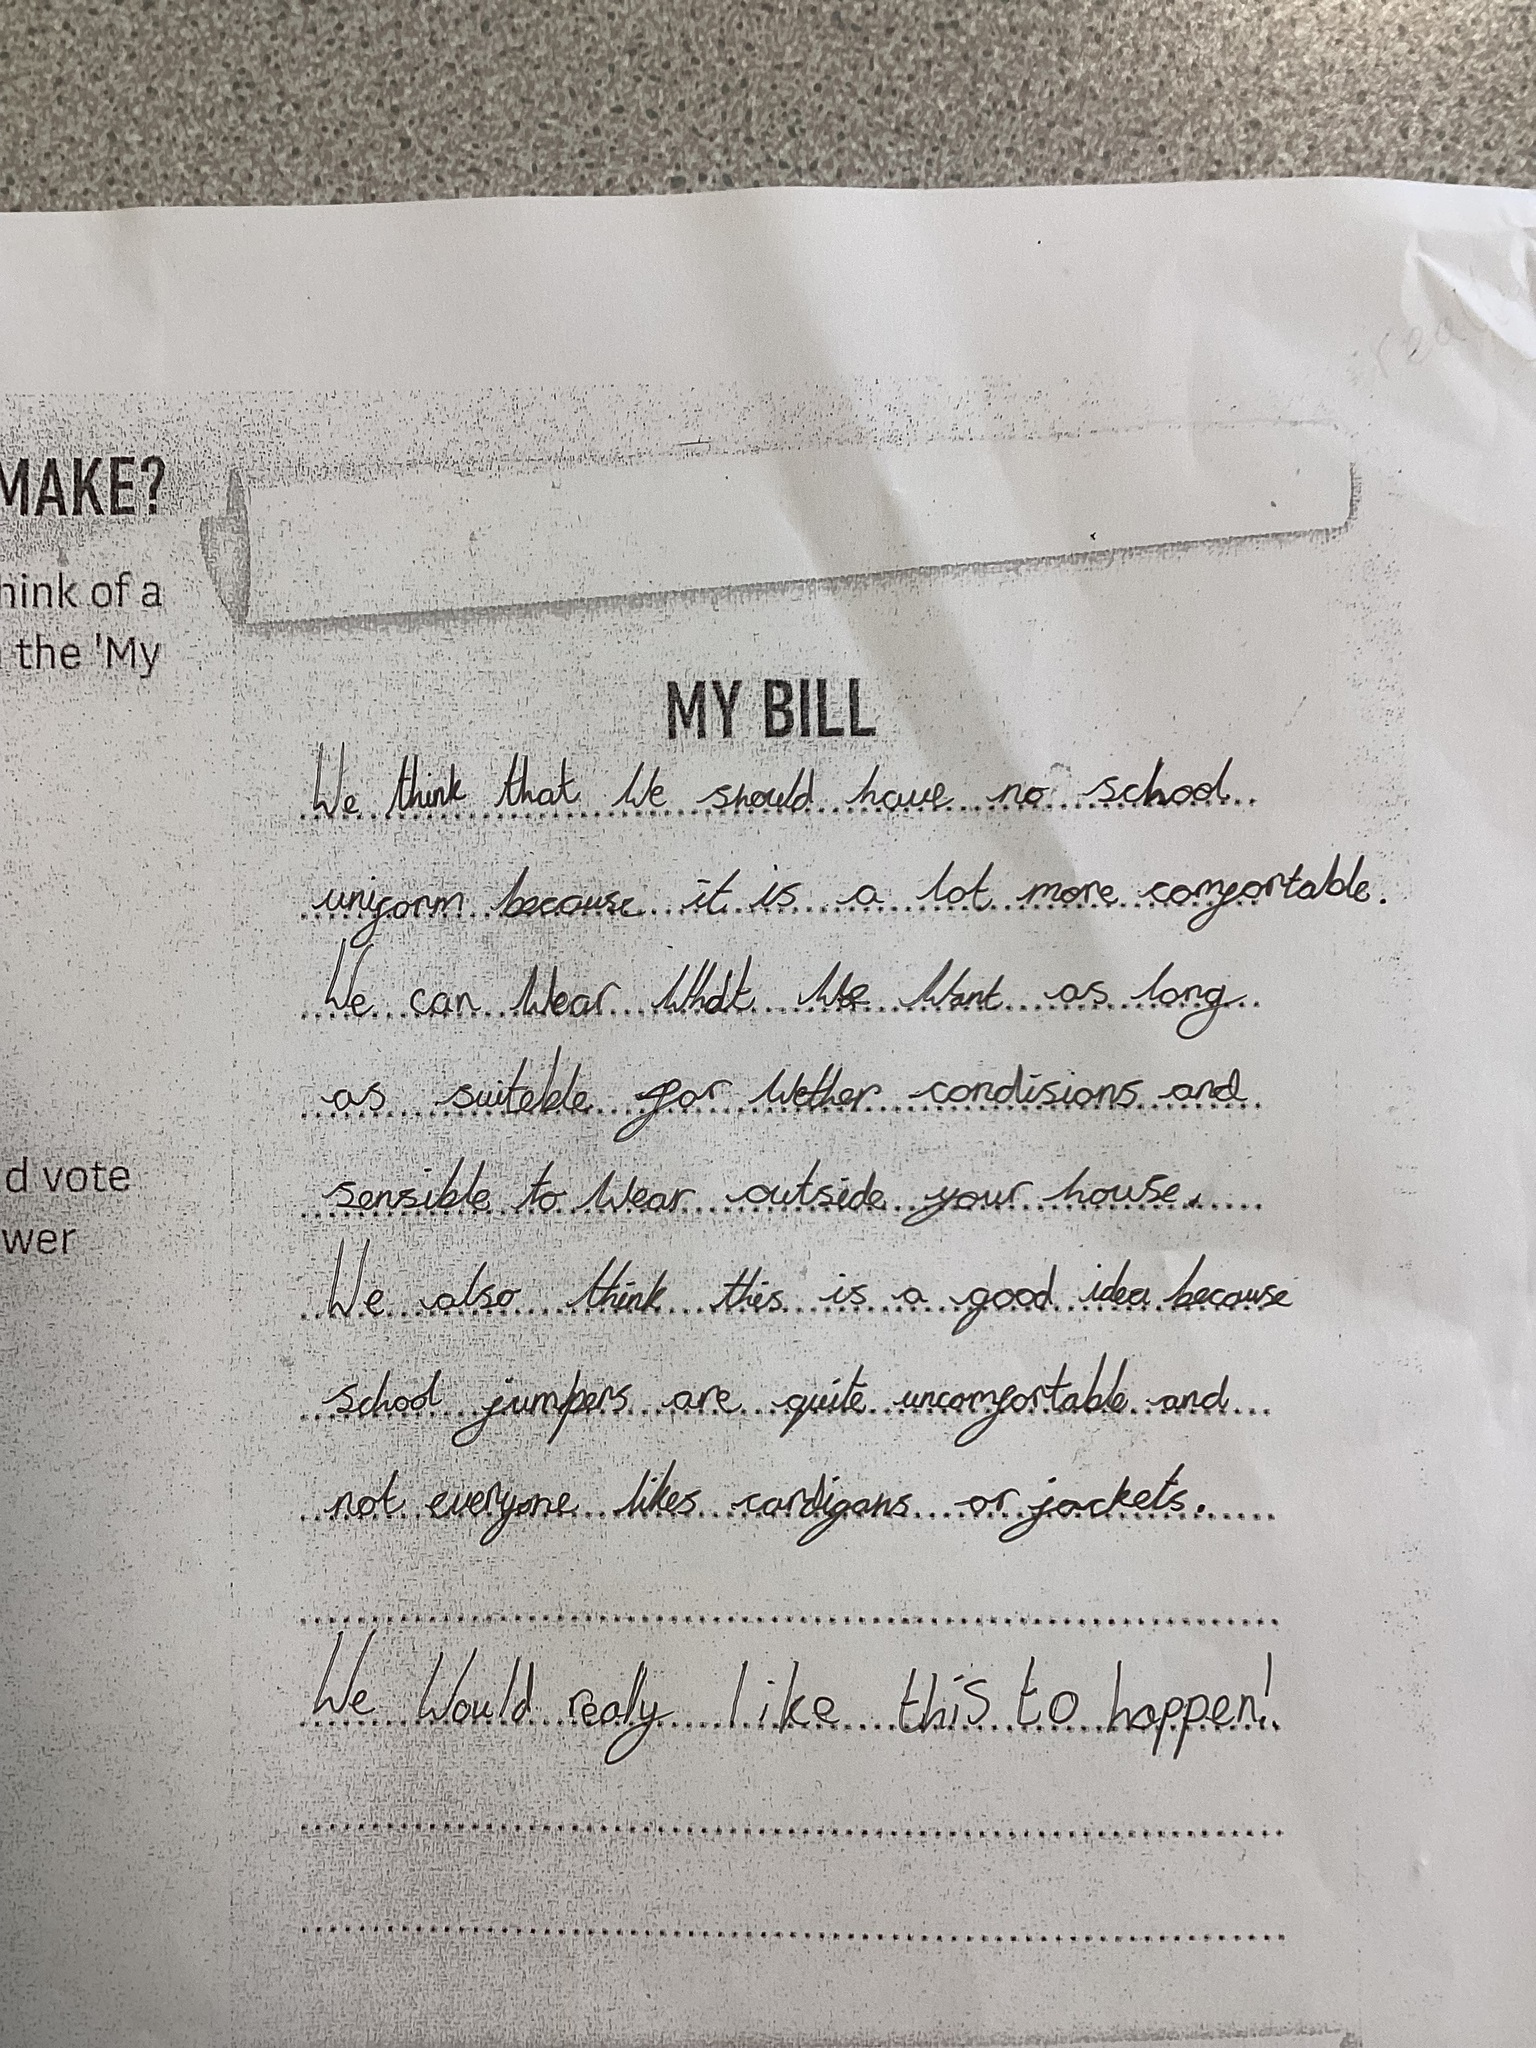 MAKE?
hink of a
the 'My
MY BILL
We think that We should have no school
uniform because it is a lot more comfortable.
We can Wear What We Want as long
as suiteble for Wether condisions and
sensible to Wear outside your house.
d vote
wer
We also think this is a good idea because
school jumpers are quite uncomfortable and
not everyone likes cardigans or jackets.
We Would realy like this to happen!